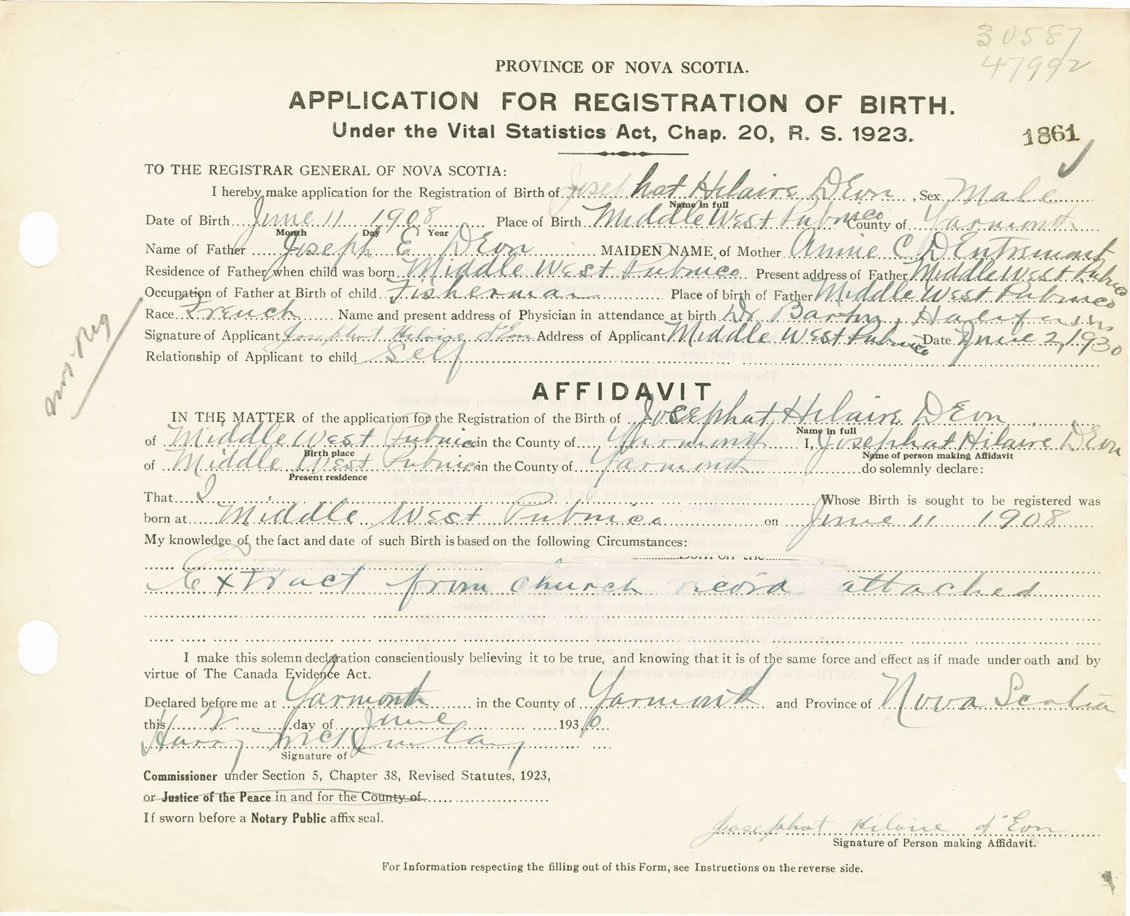 30587
47992
PROVINCE OF NOVA SCOTIA.
APPLICATION FOR REGISTRATION OF BIRTH.
Under the Vital Statistics Act, Chap. 20, R. S. 1923.
1861
TO THE REGISTRAR GENERAL OF NOVA SCOTIA:
I hereby make application for the Registration of Birth of Josephat Hilaire DEon, Sex Male
Name in full
Date of Birth June 11 1908 Place of Birth Middle West Pubnico County of Yarmouth
Month Day Year
Name of Father Joseph E DEon MAIDEN NAME of Mother Annie C DEntremont
Residence of Father when child was born Middle West Pubnico Present address of Father Middle West Pubnico
Occupation of Father at Birth of child Fisherman Place of birth of Father Middle West Pubnico
Race French Name and present address of Physician in attendance at birth Dr. Halifax
Signature of Applicant Josephat Hilaire d'Eon Address of Applicant Middle West Pubnico Date June 2, 1930
Relationship of Applicant to child Self
AFFIDAVIT
IN THE MATTER of the application for the Registration of the Birth of Josephat Hilaire DEon
Name in full
of Middle West Pubnico in the County of Yarmouth I, Josephat Hilaire DEon
Birth place Name of person making Affidavit
of Middle West Pubnico in the County of Yarmouth do solemnly declare:
Present residence
That I Whose Birth is sought to be registered was
born at Middle West Pubnico on June 11 1908
My knowledge of the fact and date of such Birth is based on the following Circumstances:
Extract from church record attached
I make this solemn declaration conscientiously believing it to be true, and knowing that it is of the same force and effect as if made under oath and by
virtue of The Canada Evidence Act.
Declared before me at Yarmouth in the County of Yarmouth and Province of Nova Scotia
this 2 day of June 1930
Harry McKinlay
Signature of
Commissioner under Section 5, Chapter 38, Revised Statutes, 1923,
or Justice of the Peace in and for the County of
If sworn before a Notary Public affix seal.
Josephat Hilaire d'Eon
Signature of Person making Affidavit.
For Information respecting the filling out of this Form, see Instructions on the reverse side.